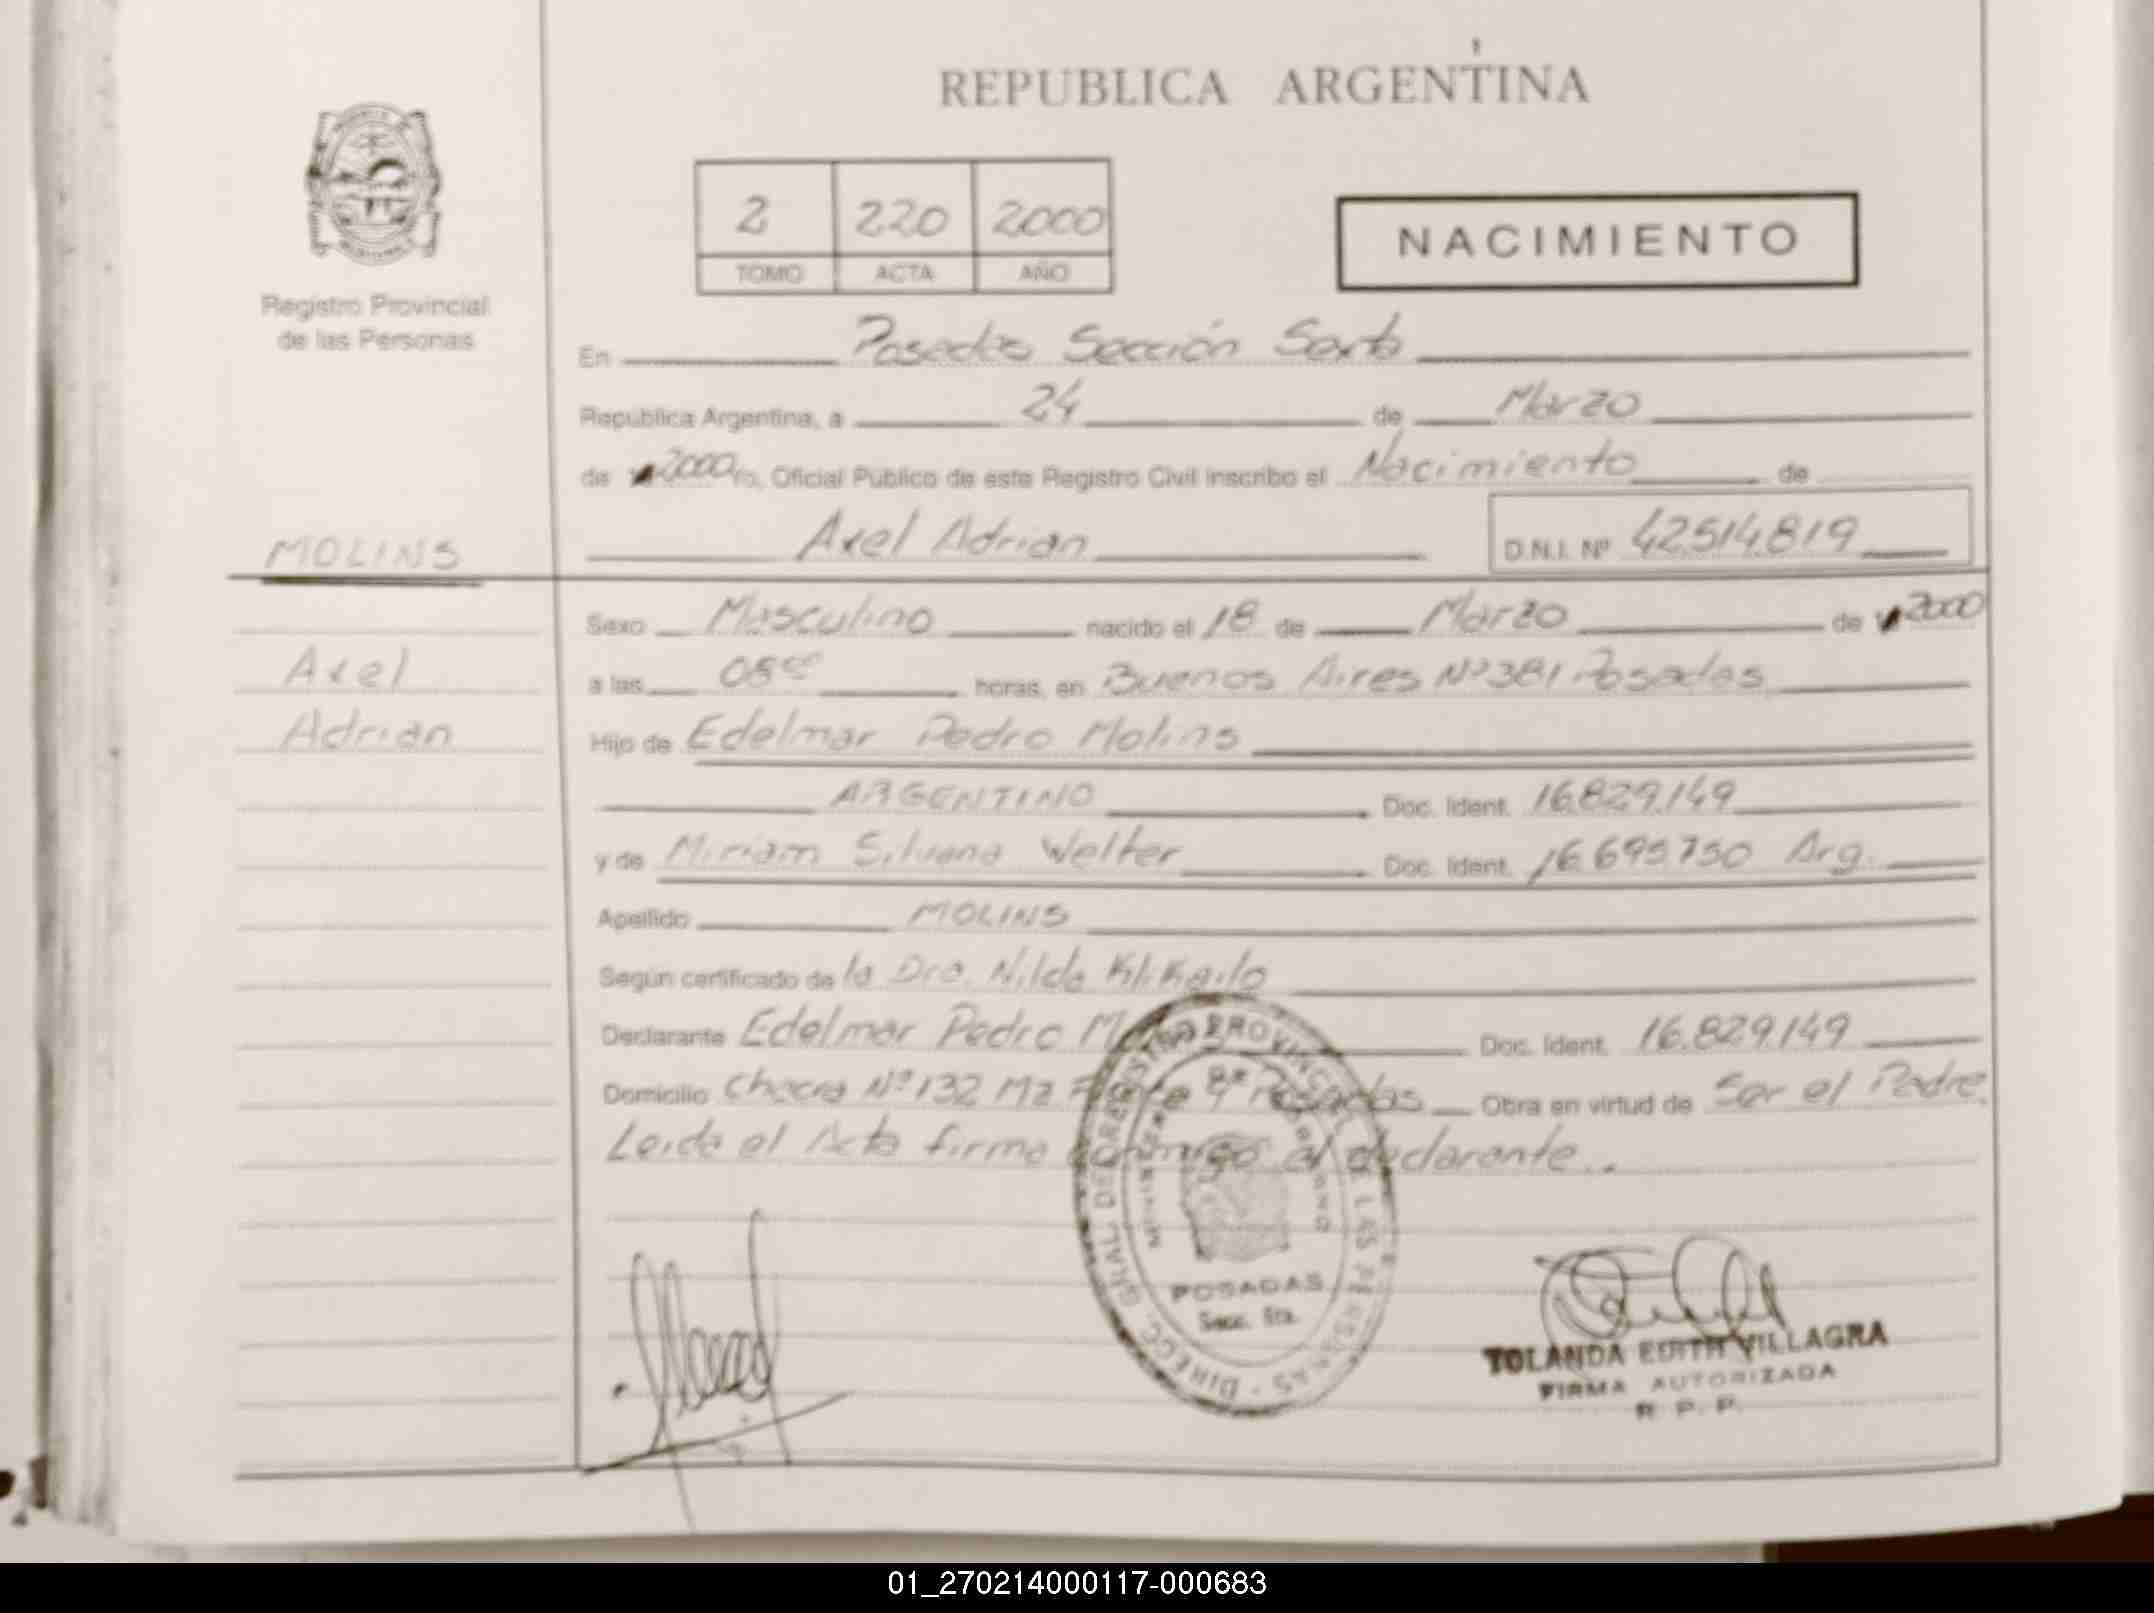 REPUBLICA ARGENTINA
Registro Provincial
de las Personas
2 220 2000
TOMO ACTA AÑO
NACIMIENTO
En Posadas Sección Sexta
República Argentina, a 24 de Marzo
de 2000 Yo, Oficial Público de este Registro Civil inscribo el Nacimiento de
MOLINS
Axel Adrian D.N.I. Nº 42.514.819
Sexo Masculino nacido el 18 de Marzo de 2000
Axel
a las horas, en Buenos Aires Nº 381 Posadas
Adrian
Hijo de Edelmar Pedro Molins
ARGENTINO Doc. Ident. 16.829.149
y de Miriam Silvana Welter Doc. Ident. 16.695.750 Arg.
Apellido MOLINS
Según certificado de la Dra. Nilda
Declarante Edelmar Pedro Doc. Ident. 16.829.149
Domicilio Chacra Nº 132 Mz Posadas Obra en virtud de Ser el Padre.
Leida el Acta firma conmigo el declarante..
DIRECC. GRAL DE REGISTRO PROVINCIAL DE LAS PERSONAS
POSADAS
Secc. 6ta.
YOLANDA EDITH VILLAGRA
FIRMA AUTORIZADA
R. P. P.
01_270214000117-000683